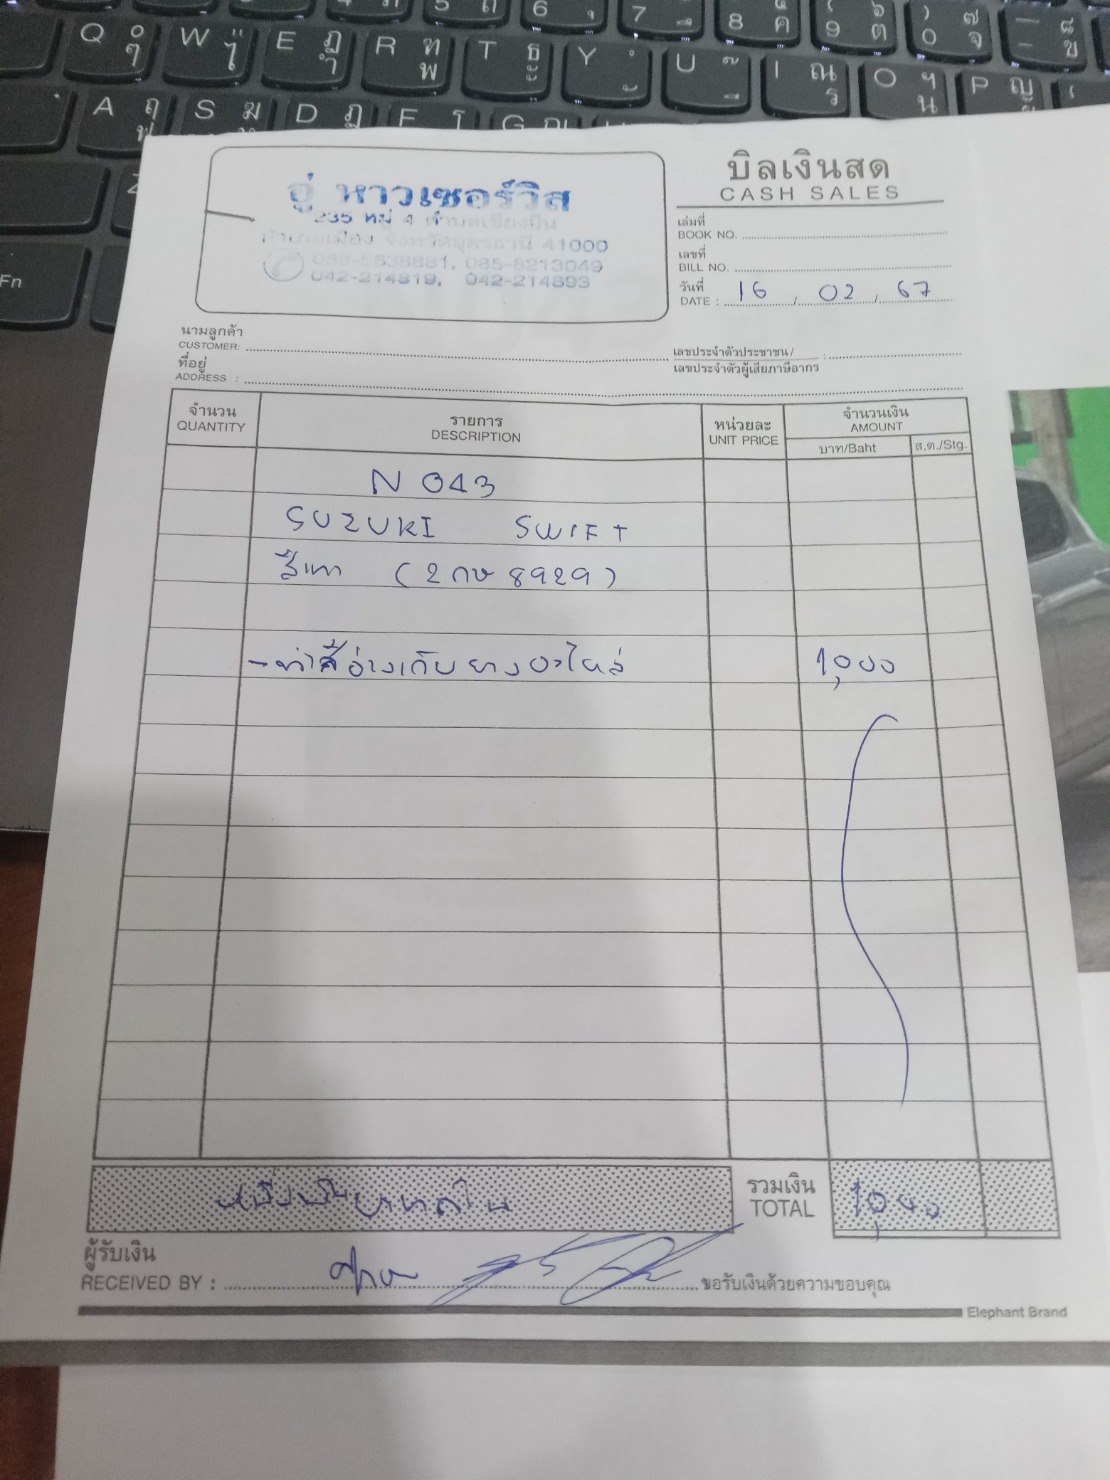 Q W E R T Y U I O P
A S D F
Fn
อู่ หาวเซอร์วิส
235 หมู่ 4 ตำบลเชียงยืน
อำเภอเมือง จังหวัดอุดรธานี 41000
085-8213049
042-214819, 042-214893
บิลเงินสด
CASH SALES
เล่มที่
BOOK NO.
เลขที่
BILL NO.
วันที่
DATE : 16 , 02 , 67
นามลูกค้า
CUSTOMER:
เลขประจำตัวประชาชน/ :
เลขประจำตัวผู้เสียภาษีอากร
ที่อยู่
ADDRESS :
จำนวน รายการ หน่วยละ จำนวนเงิน
QUANTITY DESCRIPTION UNIT PRICE AMOUNT
บาท/Baht ส.ต./Stg.
N 043
SUZUKI SWIFT
สีเทา (2 กษ 8929)
- ทำสีอ่างเก็บยางอะไหล่ 1,000
หนึ่งพันบาทถ้วน รวมเงิน 1,000
TOTAL
ผู้รับเงิน
RECEIVED BY : ขอรับเงินด้วยความขอบคุณ
Elephant Brand